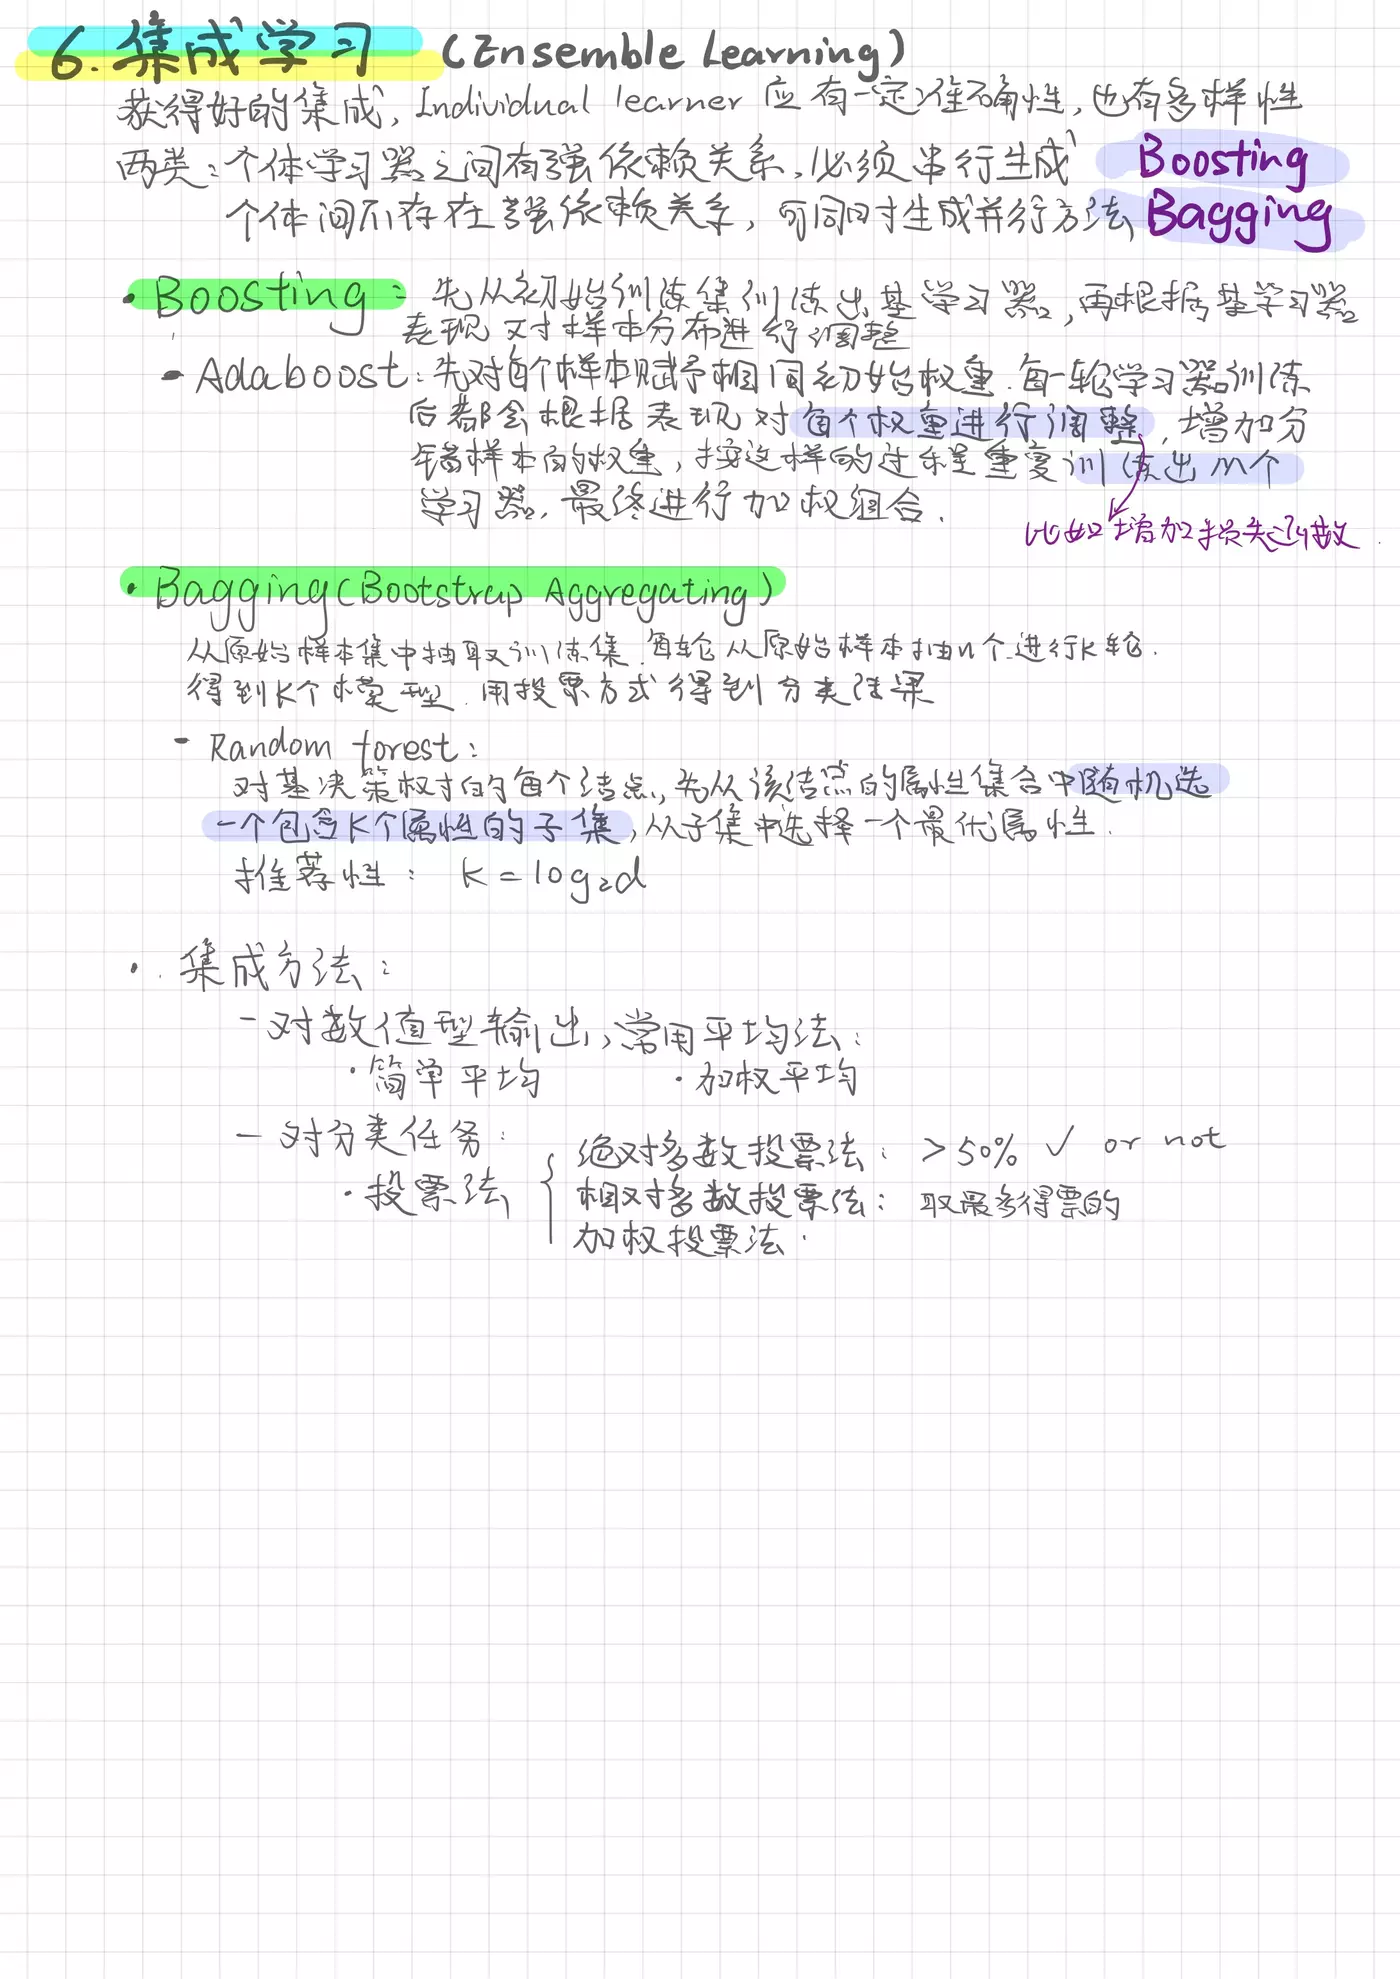 6. 集成学习 (Ensemble Learning)
获得好的集成, Individual learner 应有一定准确性, 也有多样性
两类: 个体学习器之间有强依赖关系, 必须串行生成 Boosting
个体间不存在强依赖关系, 可同时生成并行方法 Bagging
· Boosting: 先从初始训练集训练出基学习器, 再根据基学习器
表现对样本分布进行调整
- Adaboost: 先对每个样本赋予相同初始权重. 每一轮学习器训练
后都会根据表现对每个权重进行调整, 增加分
错样本的权重, 按这样的过程重复训练出 M个
学习器, 最终进行加权组合.
比如增加损失函数
· Bagging (Bootstrap Aggregating)
从原始样本集中抽取训练集. 每轮从原始样本抽n个.进行K轮.
得到K个模型. 用投票方式得到分类结果
- Random forest:
对基决策树的每个结点, 先从该结点的属性集合中随机选
一个包含K个属性的子集, 从子集中选择一个最优属性.
推荐性: K = log₂d
· 集成方法:
- 对数值型输出, 常用平均法:
· 简单平均 · 加权平均
- 对分类任务:
· 投票法 { 绝对多数投票法: >50% ✓ or not
相对多数投票法: 取最多得票的
加权投票法.